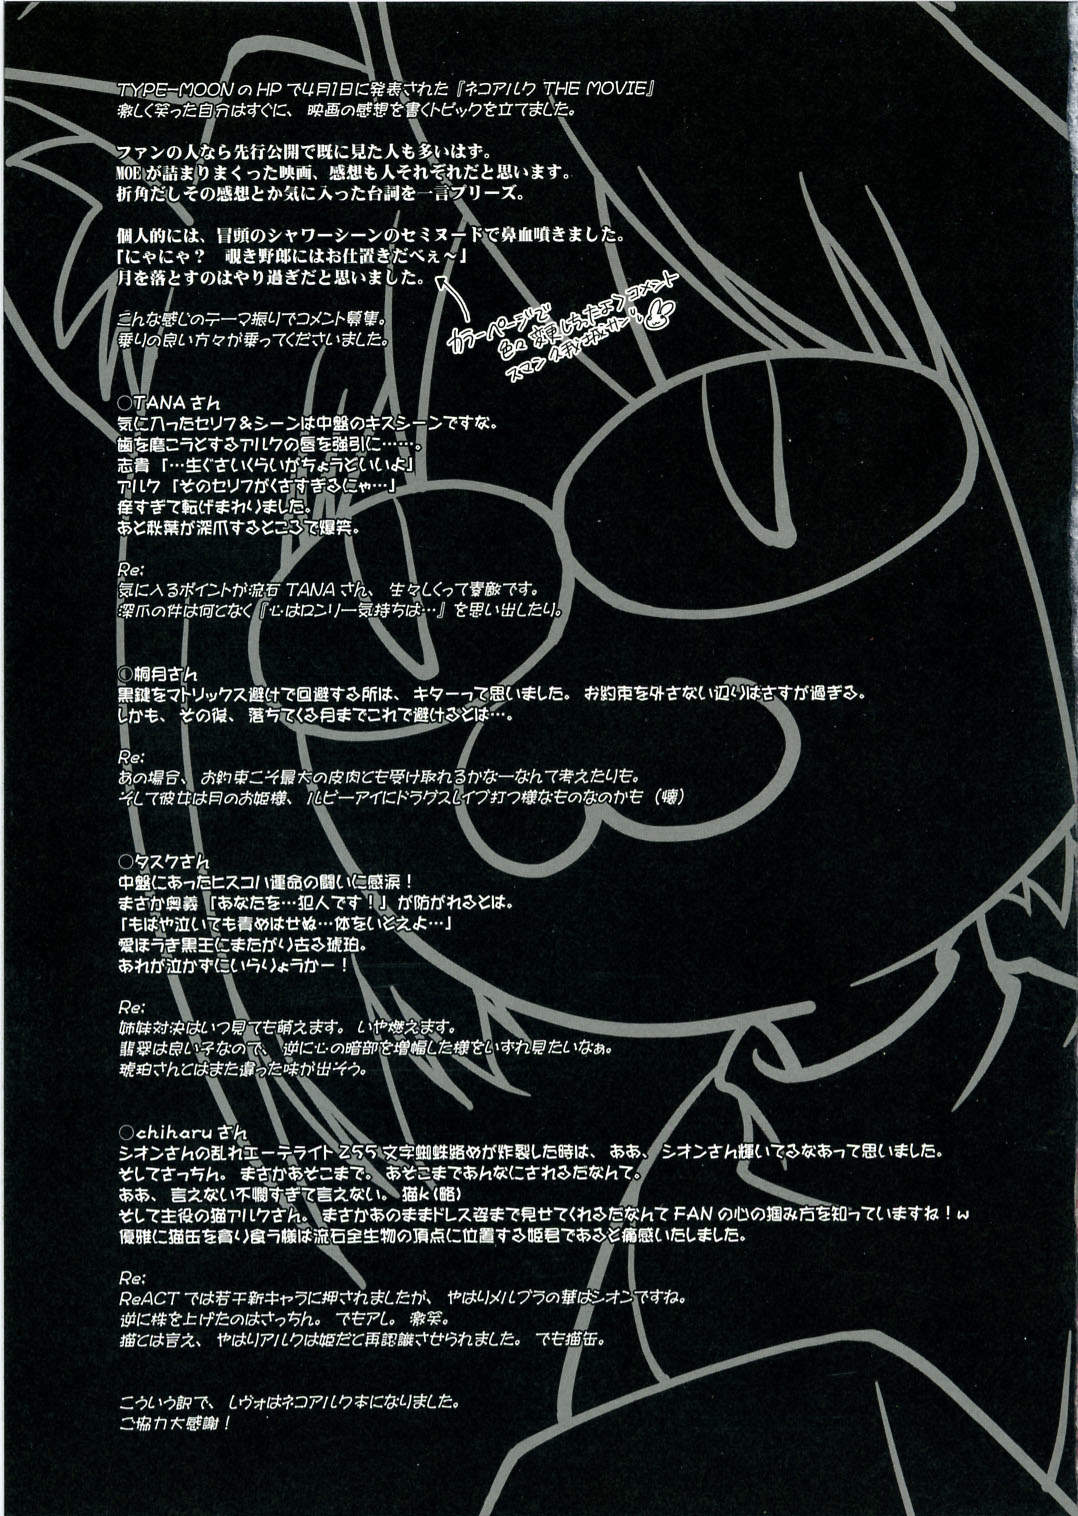 TYPE-MOONのHPで4月1日に発表された『ネコアルク THE MOVIE』
激しく笑った自分はすぐに、映画の感想を書くトピックを立てました。
ファンの人なら先行公開で既に見た人も多いはず。
MOEが詰まりまくった映画、感想も人それぞれだと思います。
折角だしその感想とか気に入った台詞を一言プリーズ。
個人的には、冒頭のシャワーシーンのセミヌードで鼻血噴きました。
「にゃにゃ？　覗き野郎にはお仕置きだべぇ～」
月を落とすのはやり過ぎだと思いました。
カラーページで
色々
コメント
スマン
こんな感じのテーマ振りでコメント募集。
乗りの良い方々が乗ってくださいました。
○TANAさん
気に入ったセリフ＆シーンは中盤のキスシーンですな。
歯を磨こうとするアルクの唇を強引に……。
志貴「…生ぐさいくらいがちょうどいいよ」
アルク「そのセリフがくさすぎるにゃ…」
痒すぎて転げまわりました。
あと秋葉が深爪するところで爆笑。
Re:
気に入るポイントが流石TANAさん、生々しくって素敵です。
深爪の件は何となく『心はロンリー気持ちは…』を思い出したり。
○桐月さん
黒鍵をマトリックス避けで回避する所は、キターって思いました。お約束を外さない辺りはさすが過ぎる。
しかも、その後、落ちてくる月までこれで避けるとは…。
Re:
あの場合、お約束こそ最大の皮肉とも受け取れるかなーなんて考えたりも。
そして彼女は月のお姫様、ルビーアイにドラグスレイブ打つ様なものなのかも（壊）
○タスクさん
中盤にあったヒスコハ運命の闘いに感涙！
まさか奥義「あなたを…犯人です！」が防がれるとは。
「もはや泣いても責めはせぬ…体をいとえよ…」
愛ほうき黒王にまたがり去る琥珀。
あれが泣かずにいらりょうかー！
Re:
姉妹対決はいつ見ても萌えます。いや燃えます。
翡翠は良い子なので、逆に心の暗部を増幅した様をいずれ見たいなぁ。
琥珀さんとはまた違った味が出そう。
○chiharuさん
シオンさんの乱れエーテライト255文字蜘蛛絡めが炸裂した時は、ああ、シオンさん輝いてるなあって思いました。
そしてさっちん。まさかあそこまで。あそこまであんなにされるだなんて。
ああ、言えない不憫すぎて言えない。猫k（略）
そして主役の猫アルクさん。まさかあのままドレス姿まで見せてくれるだなんてFANの心の掴み方を知っていますね！w
優雅に猫缶を貪り食う様は流石全生物の頂点に位置する姫君であると痛感いたしました。
Re:
ReACTでは若干新キャラに押されましたが、やはりメルブラの華はシオンですね。
逆に株を上げたのはさっちん。でもアレ。激笑。
猫とは言え、やはりアルクは姫だと再認識させられました。でも猫缶。
こういう訳で、レヴォはネコアルク本になりました。
ご協力大感謝！